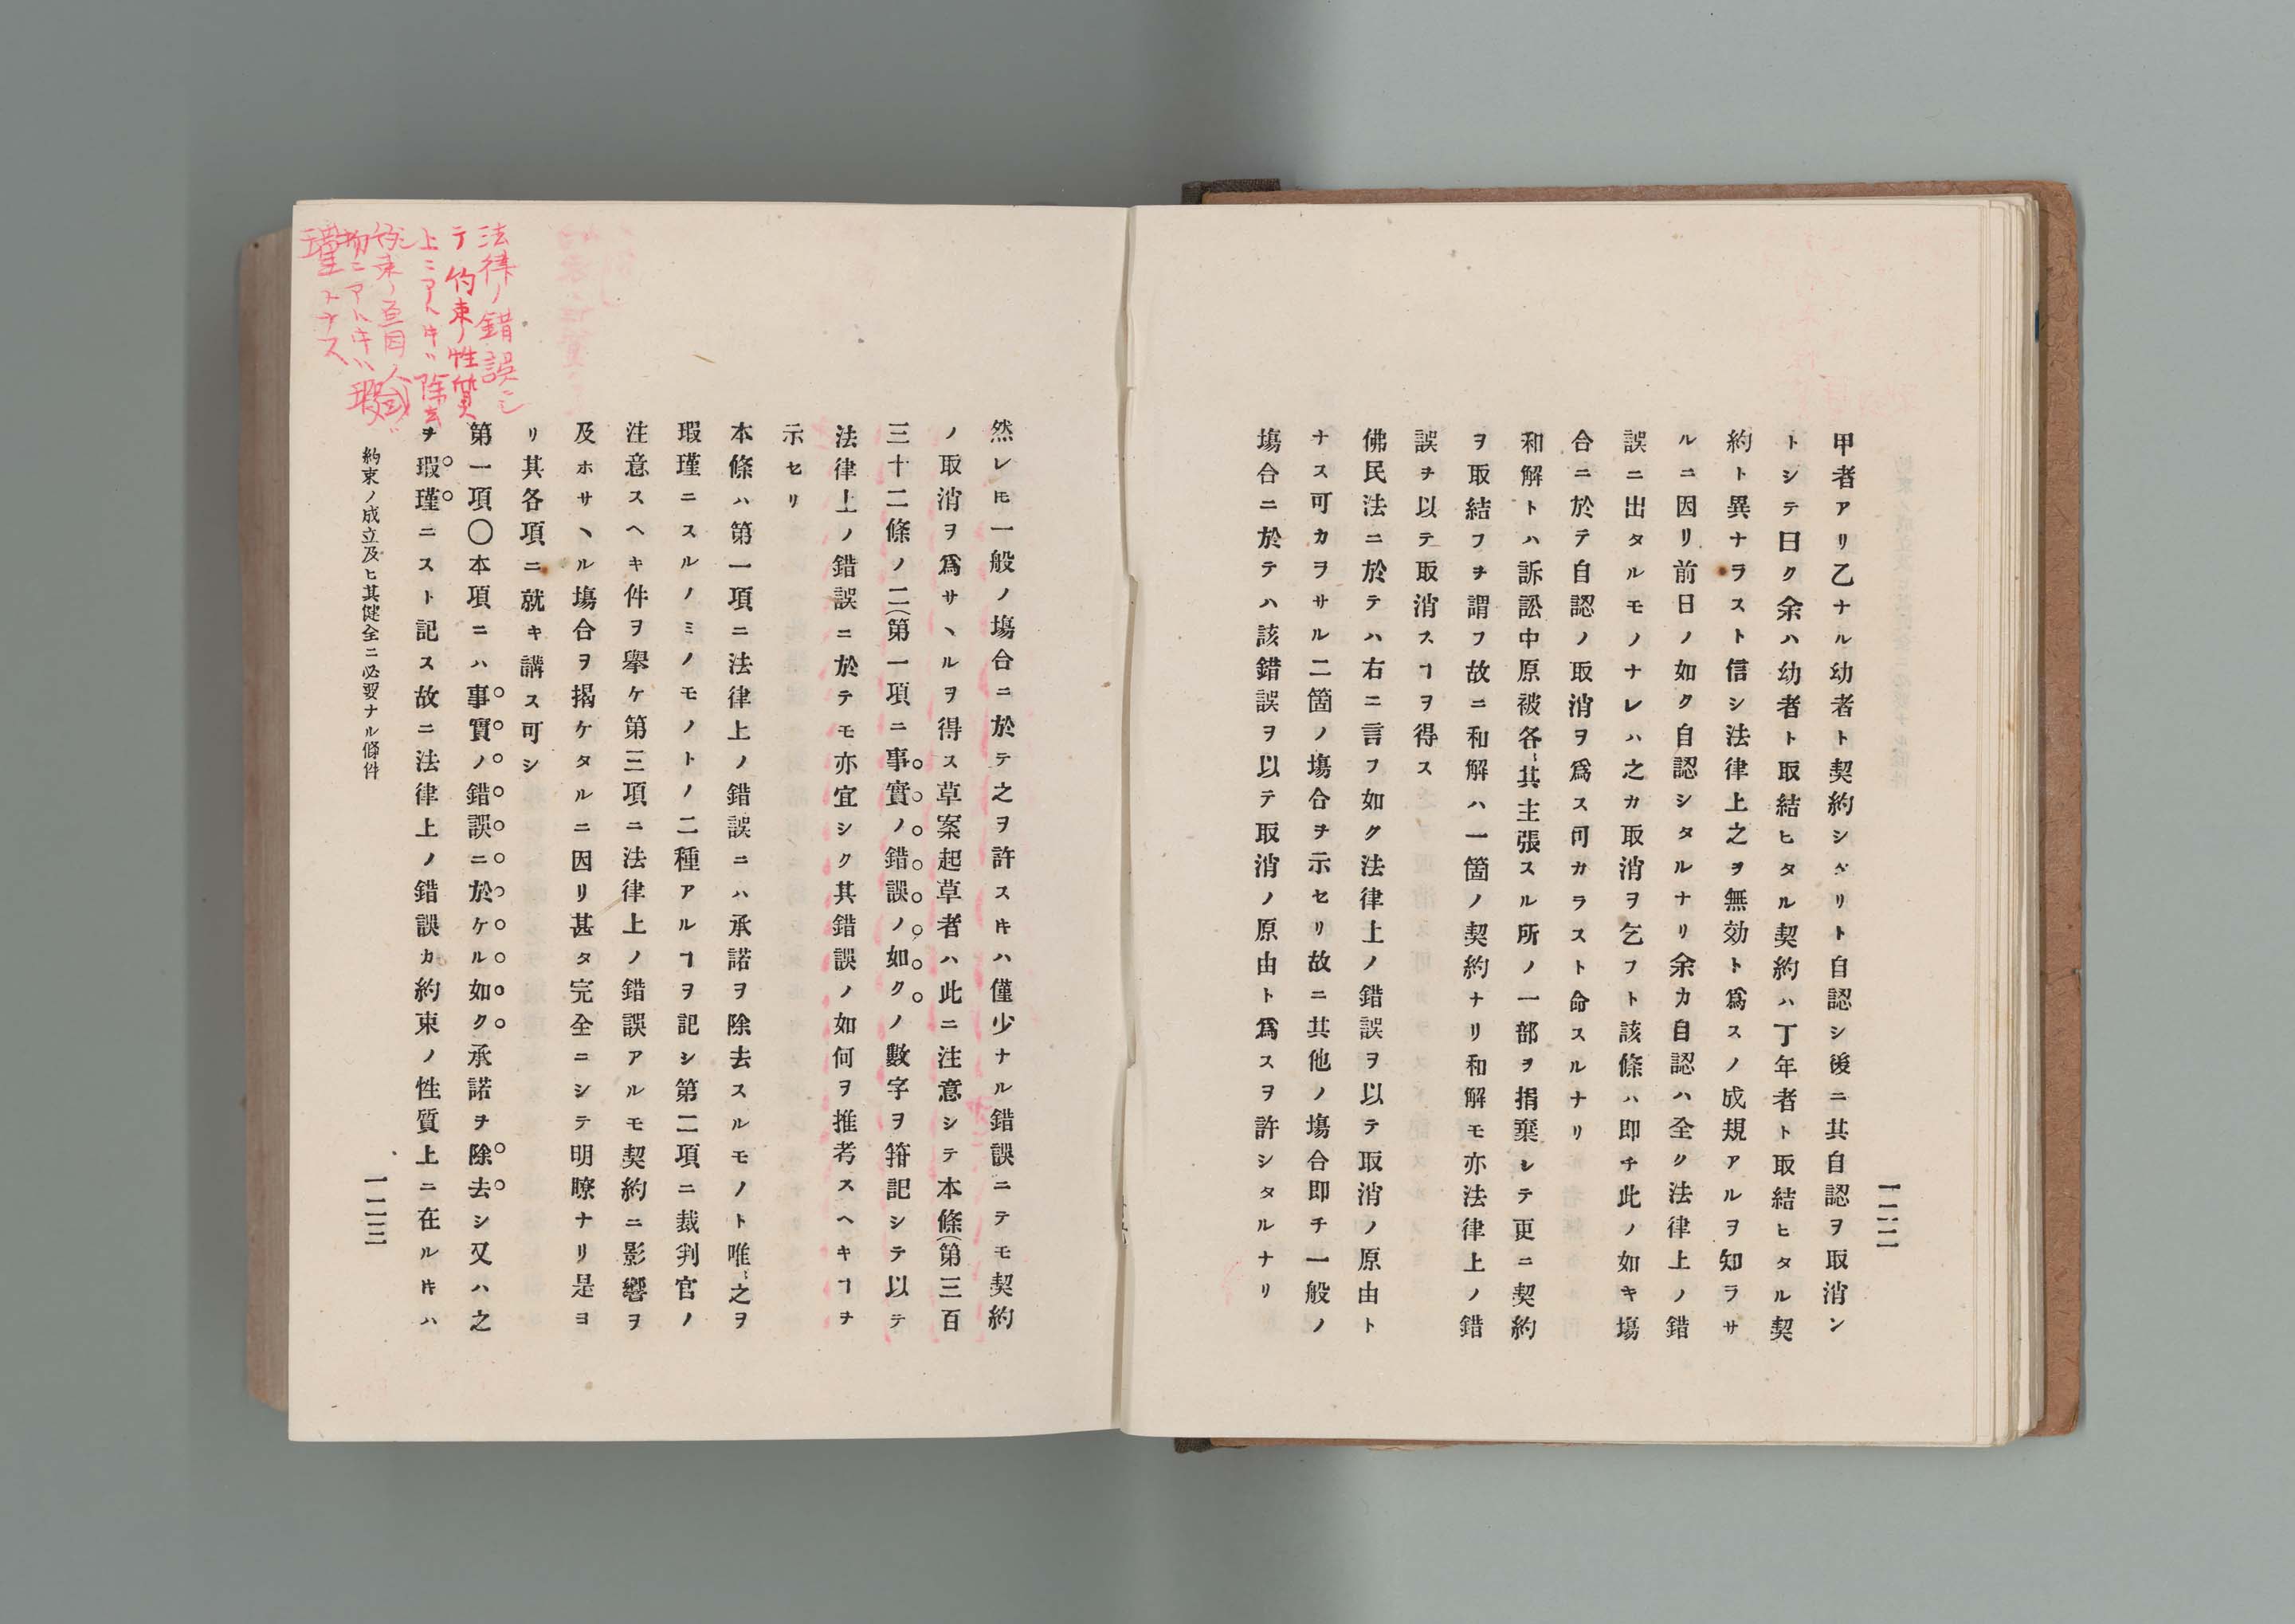 一二二
甲者アリ乙ナル幼者ト契約シタリト自認シ後ニ其自認ヲ取消ン
トシテ曰ク余ハ幼者ト取結ヒタル契約ハ丁年者ト取結ヒタル契
約ト異ナラスト信シ法律上之ヲ無効ト爲スノ成規アルヲ知ラサ
ルニ因リ前日ノ如ク自認シタルナリ余カ自認ハ全ク法律上ノ錯
誤ニ出タルモノナレハ之カ取消ヲ乞フト該條ハ即チ此ノ如キ塲
合ニ於テ自認ノ取消ヲ爲ス可カラスト命スルナリ
和解トハ訴訟中原被各〻其主張スル所ノ一部ヲ捐棄シテ更ニ契約
ヲ取結フヲ謂フ故ニ和解ハ一箇ノ契約ナリ和解モ亦法律上ノ錯
誤ヲ以テ取消スヿヲ得ス
佛民法ニ於テハ右ニ言フ如ク法律上ノ錯誤ヲ以テ取消ノ原由ト
ナス可カラサル二箇ノ塲合ヲ示セリ故ニ其他ノ塲合即チ一般ノ
塲合ニ於テハ該錯誤ヲ以テ取消ノ原由ト爲スヲ許シタルナリ
然レ𪜈一般ノ塲合ニ於テ之ヲ許スキハ僅少ナル錯誤ニテモ契約
ノ取消ヲ爲サヽルヲ得ス草案起草者ハ此ニ注意シテ本條(第三百
三十二條ノ二(第一項ニ事實ノ錯誤ノ如クノ數字ヲ筓記シテ以テ
法律上ノ錯誤ニ於テモ亦宜シク其錯誤ノ如何ヲ推考スヘキヿヲ
示セリ
本條ハ第一項ニ法律上ノ錯誤ニハ承諾ヲ除去スルモノト唯〻之ヲ
瑕瑾ニスルノミノモノトノ二種アルヿヲ記シ第二項ニ裁判官ノ
注意スヘキ件ヲ擧ケ第三項ニ法律上ノ錯誤アルモ契約ニ影響ヲ
及ホサヽル塲合ヲ揭ケタルニ因リ甚タ完全ニシテ明瞭ナリ是ヨ
リ其各項ニ就キ講ス可シ
第一項〇本項ニハ事實ノ錯誤ニ於ケル如ク承諾ヲ除去シ又ハ之
ヲ瑕瑾ニスト記ス故ニ法律上ノ錯誤カ約束ノ性質上ニ在ルキハ
約束ノ成立及ヒ其健全ニ必要ナル條件
一二三
法律ノ錯誤ニシ
テ約束ノ性質
上ニアルキハ除去
シ約束ノ原因人
物ニアルキハ瑕
瑾トナス